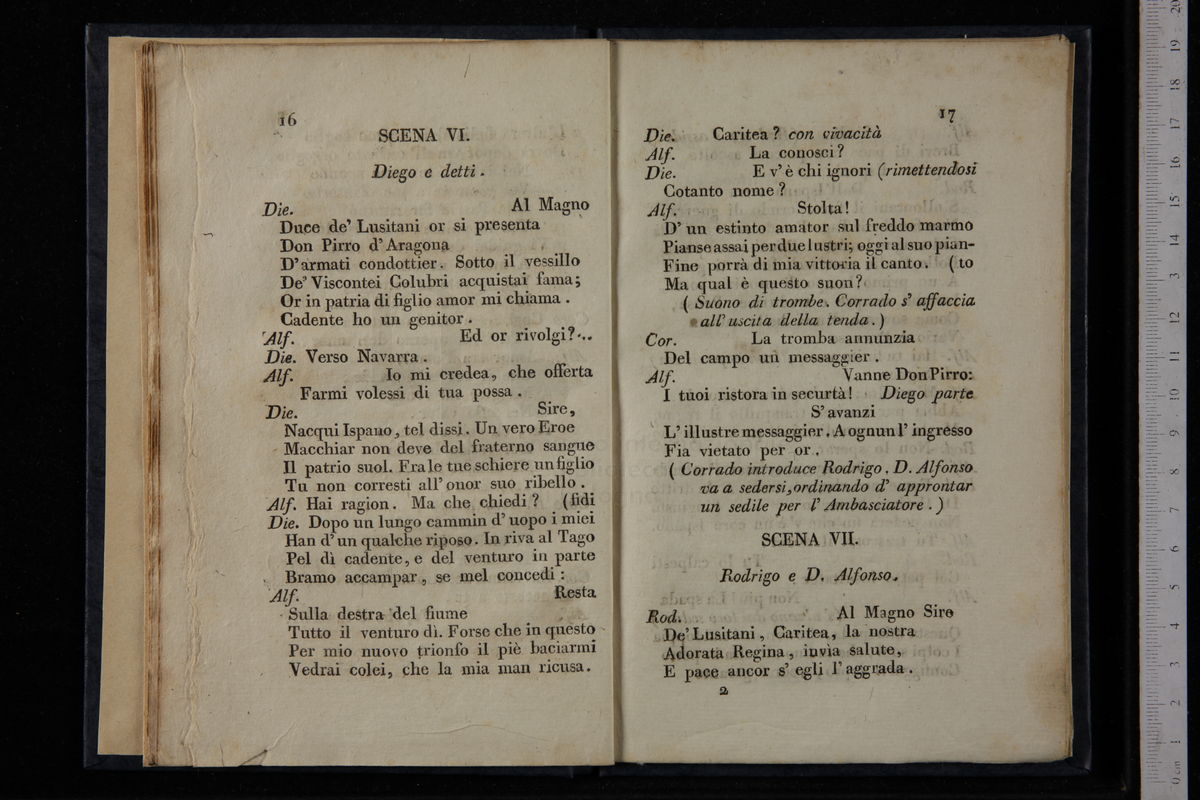 16
SCENA VI.
Diego e detti.
Die. Al Magno
Duce de' Lusitani or si presenta
Don Pirro d'Aragona
D'armati condottier. Sotto il vessillo
De' Viscontei Colubri acquistai fama;
Or in patria di figlio amor mi chiama.
Cadente ho un genitor.
Alf. Ed or rivolgi?...
Die. Verso Navarra.
Alf. Io mi credea, che offerta
Farmi volessi di tua possa.
Die. Sire,
Nacqui Ispano, tel dissi. Un vero Eroe
Macchiar non deve del fraterno sangue
Il patrio suol. Fra le tue schiere un figlio
Tu non corresti all'onor suo ribello.
Alf. Hai ragion. Ma che chiedi? (fidi
Die. Dopo un lungo cammin d'uopo i miei
Han d'un qualche riposo. In riva al Tago
Pel dì cadente, e del venturo in parte
Bramo accampar, se mel concedi:
Alf. Resta
Sulla destra del fiume
Tutto il venturo dì. Forse che in questo
Per mio nuovo trionfo il piè baciarmi
Vedrai colei, che la mia man ricusa.
17
Die. Caritea? con vivacità
Alf. La conosci?
Die. E v'è chi ignori (rimettendosi
Cotanto nome?
Alf. Stolta!
D'un estinto amator sul freddo marmo
Pianse assai per due lustri; oggi al suo pian-
Fine porrà di mia vittoria il canto. (to
Ma qual è questo suon?
( Suono di trombe. Corrado s'affaccia
all'uscita della tenda.)
Cor. La tromba annunzia
Del campo un messaggier.
Alf. Vanne Don Pirro:
I tuoi ristora in securtà! Diego parte
S'avanzi
L'illustre messaggier. A ognun l'ingresso
Fia vietato per or.
( Corrado introduce Rodrigo. D. Alfonso
va a sedersi, ordinando d'approntar
un sedile per l'Ambasciatore.)
SCENA VII.
Rodrigo e D. Alfonso.
Rod. Al Magno Sire
De' Lusitani, Caritea, la nostra
Adorata Regina, invia salute,
E pace ancor s'egli l'aggrada.
2
0 cm 1 2 3 4 5 6 7 8 9 10 11 12 13 14 15 16 17 18 19 20